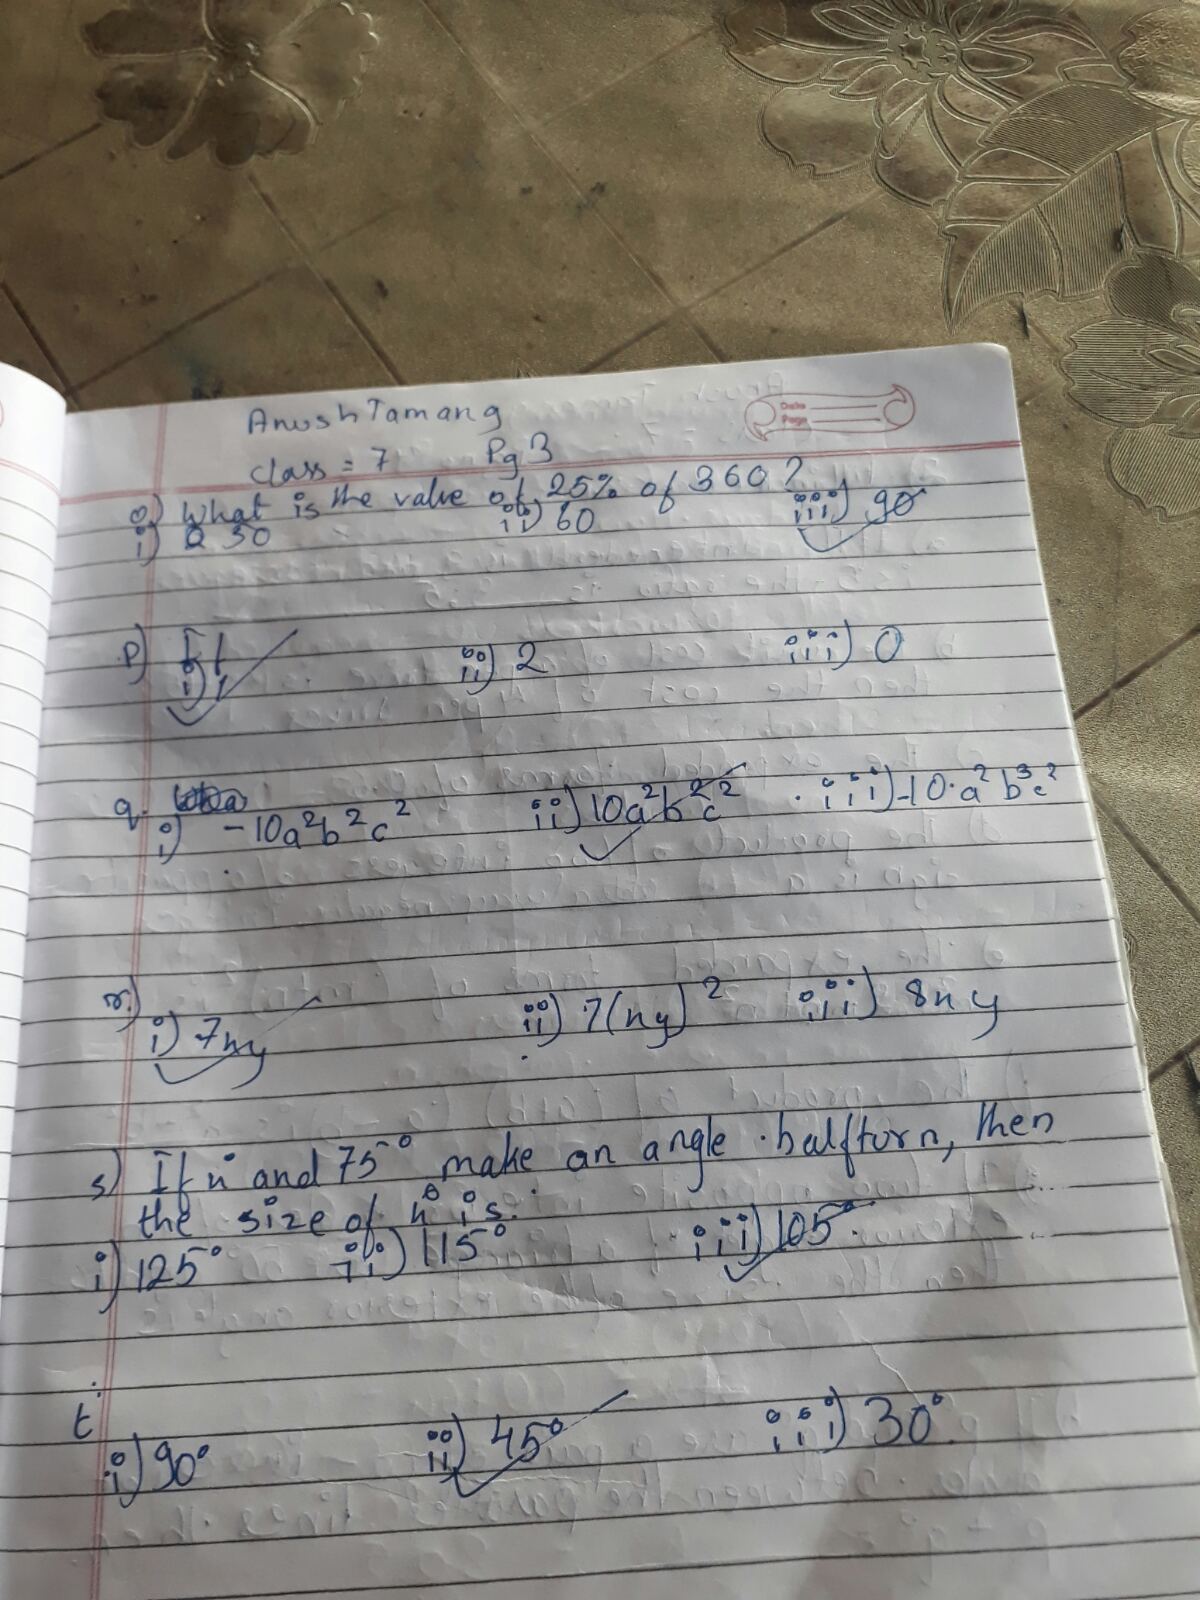 Anush Tamang
Date
Page
class = 7 Pg 3
o) What is the value of 25% of 360?
i) 30 ii) 60 iii) 90
p) i) 1 ii) 2 iii) 0
q. i) -10a²b²c² ii) 10a²b²c² iii) -10.a²b³c²
r) i) 7xy ii) 7(xy)² iii) 8xy
s) If x° and 75° make an angle halfturn, then
the size of x° is.
i) 125° ii) 115° iii) 105°
t
i) 90° ii) 45° iii) 30°